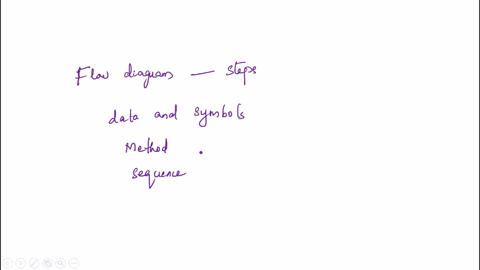 Flow diagrams — steps
data and symbols
Method .
sequence